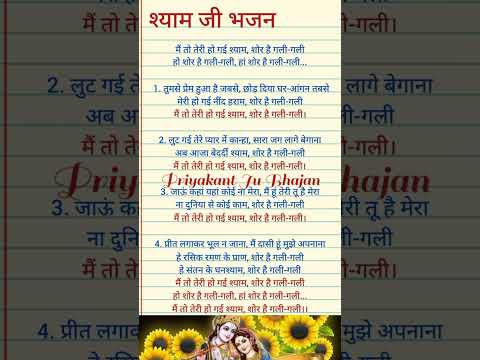 श्याम जी भजन
मैं तो तेरी हो गई श्याम, शोर है गली-गली
हो शोर है गली-गली, हां शोर है गली-गली...
1. तुमसे प्रेम हुआ है जबसे, छोड़ दिया घर-आंगन तबसे
मेरी हो गई नींद हराम, शोर है गली-गली
मैं तो तेरी हो गई श्याम, शोर है गली-गली।
2. लुट गई तेरे प्यार में कान्हा, सारा जग लागे बेगाना
अब आजा बेदर्दी श्याम, शोर है गली-गली
मैं तो तेरी हो गई श्याम, शोर है गली-गली।
Priyakant Ju Bhajan
3. जाऊं कहां यहां कोई ना मेरा, मैं हूं तेरी तू है मेरा
ना दुनिया से कोई काम, शोर है गली-गली
मैं तो तेरी हो गई श्याम, शोर है गली-गली।
4. प्रीत लगाकर भूल न जाना, मैं दासी हूं मुझे अपनाना
हे रसिक रमण के प्राण, शोर है गली-गली
हे संतन के घनश्याम, शोर है गली-गली
मैं तो तेरी हो गई श्याम, शोर है गली-गली।
हो शोर है गली-गली, हां शोर है गली-गली...
मैं तो तेरी हो गई श्याम, शोर है गली-गली।।
2. लुट गई
लागे बेगाना
अब आ
गली
Priya
hajan
3. जाऊं क
है मेरा
ना दुनि
गली
मैं तो ते
गली।
4. प्रीत ल
मुझे अपनाना